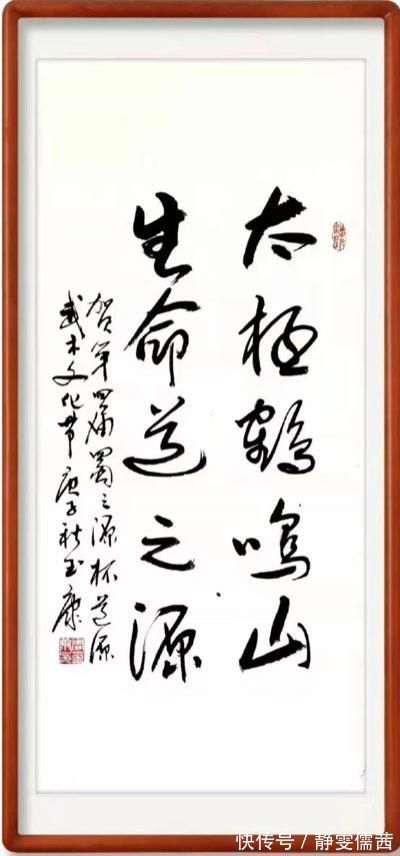 太极鹤鸣山
生命道之源
贺第四届蜀之源杯道源
武术文化节庚子秋玉康
快传号 / 静雯儒茜